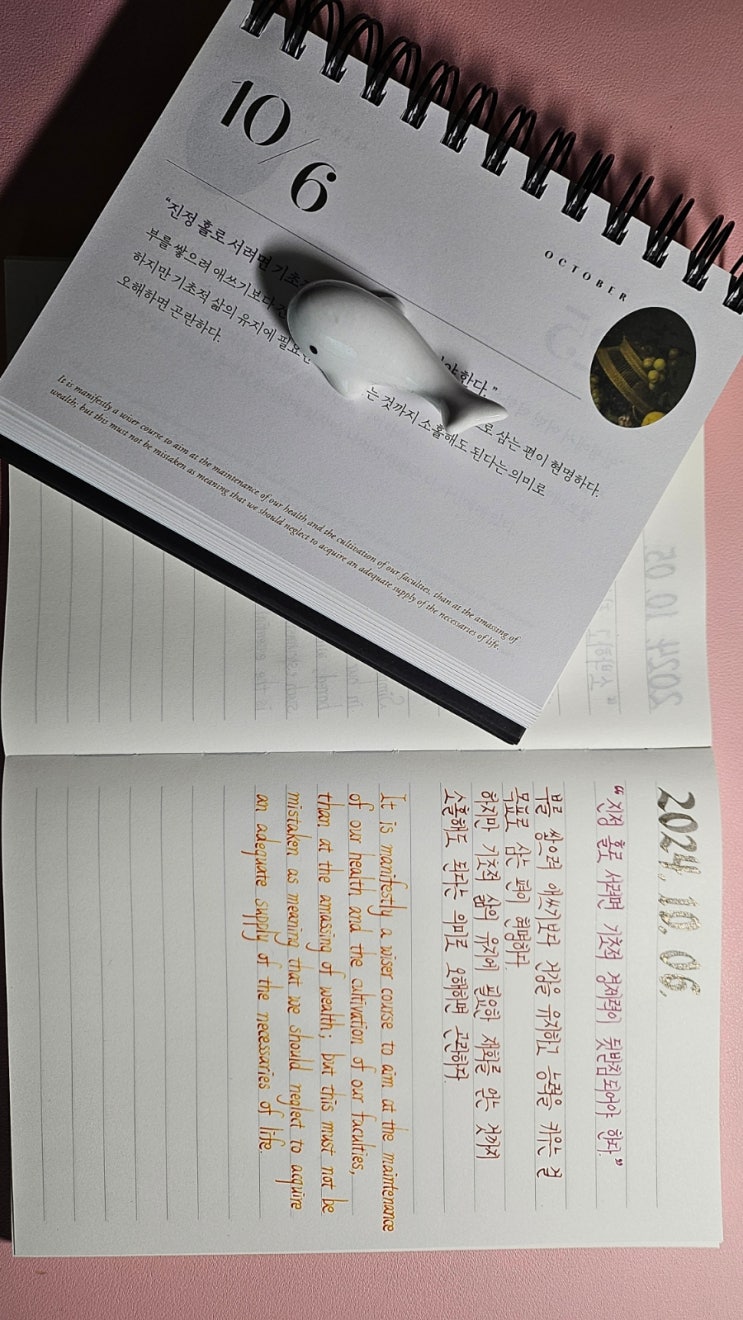 10/6
OCTOBER
"진정 홀로 서려면 기초 야 한다."
부를 쌓으려 애쓰기보다 건 로 삼는 편이 현명하다.
하지만 기초적 삶의 유지에 필요한 는 것까지 소홀해도 된다는 의미로
오해하면 곤란하다.
It is manifestly a wiser course to aim at the maintenance of our health and the cultivation of our faculties, than at the amassing of
wealth; but this must not be mistaken as meaning that we should neglect to acquire an adequate supply of the necessaries of life.
2024. 10. 06.
"진정 홀로 서려면 기초적 경제력이 뒷받침되어야 한다."
부를 쌓으려 애쓰기보다 건강을 유지하고 능력을 키우는 걸
목표로 삼는 편이 현명하다.
하지만 기초적 삶의 유지에 필요한 재화를 얻는 것까지
소홀해도 된다는 의미로 오해하면 곤란하다.
It is manifestly a wiser course to aim at the maintenance
of our health and the cultivation of our faculties,
than at the amassing of wealth; but this must not be
mistaken as meaning that we should neglect to acquire
an adequate supply of the necessaries of life.
2024.10.05